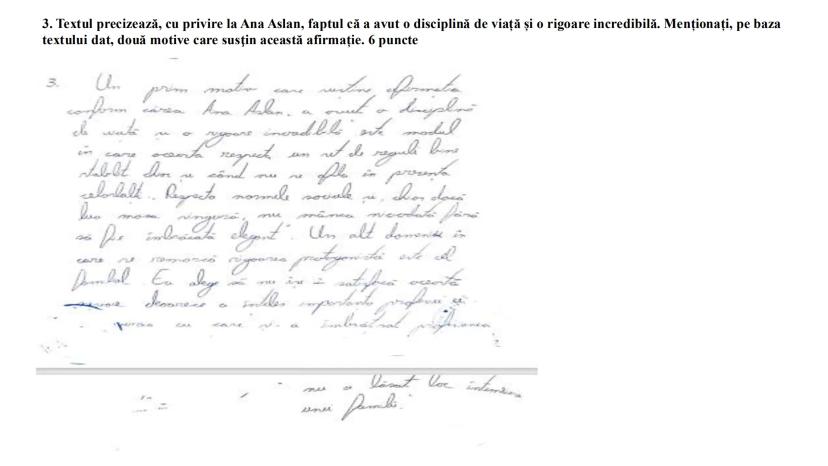 3. Textul precizează, cu privire la Ana Aslan, faptul că a avut o disciplină de viață și o rigoare incredibilă. Menționați, pe baza
textului dat, două motive care susțin această afirmație. 6 puncte
3. Un prim motiv care susține afirmația
conform căreia Ana Aslan „a avut o disciplină
de viață și o rigoare incredibilă" este modul
în care aceasta respectă un set de reguli bine
stabilit din și când nu se afla în prezența
celorlalți. Respecta normele sociale și, „chiar dacă
lua masa singură, nu mânca niciodată până
să fie îmbrăcată elegant". Un alt domeniu în
care se remarcă rigoarea protagonistei este cel
familial. Ea alege să nu își satisfacă această
deoarece a înțeles importanța profesiei și
cu care s-a îmbrățișat profesiunea
nu a lăsat loc întemeierii
unei familii."